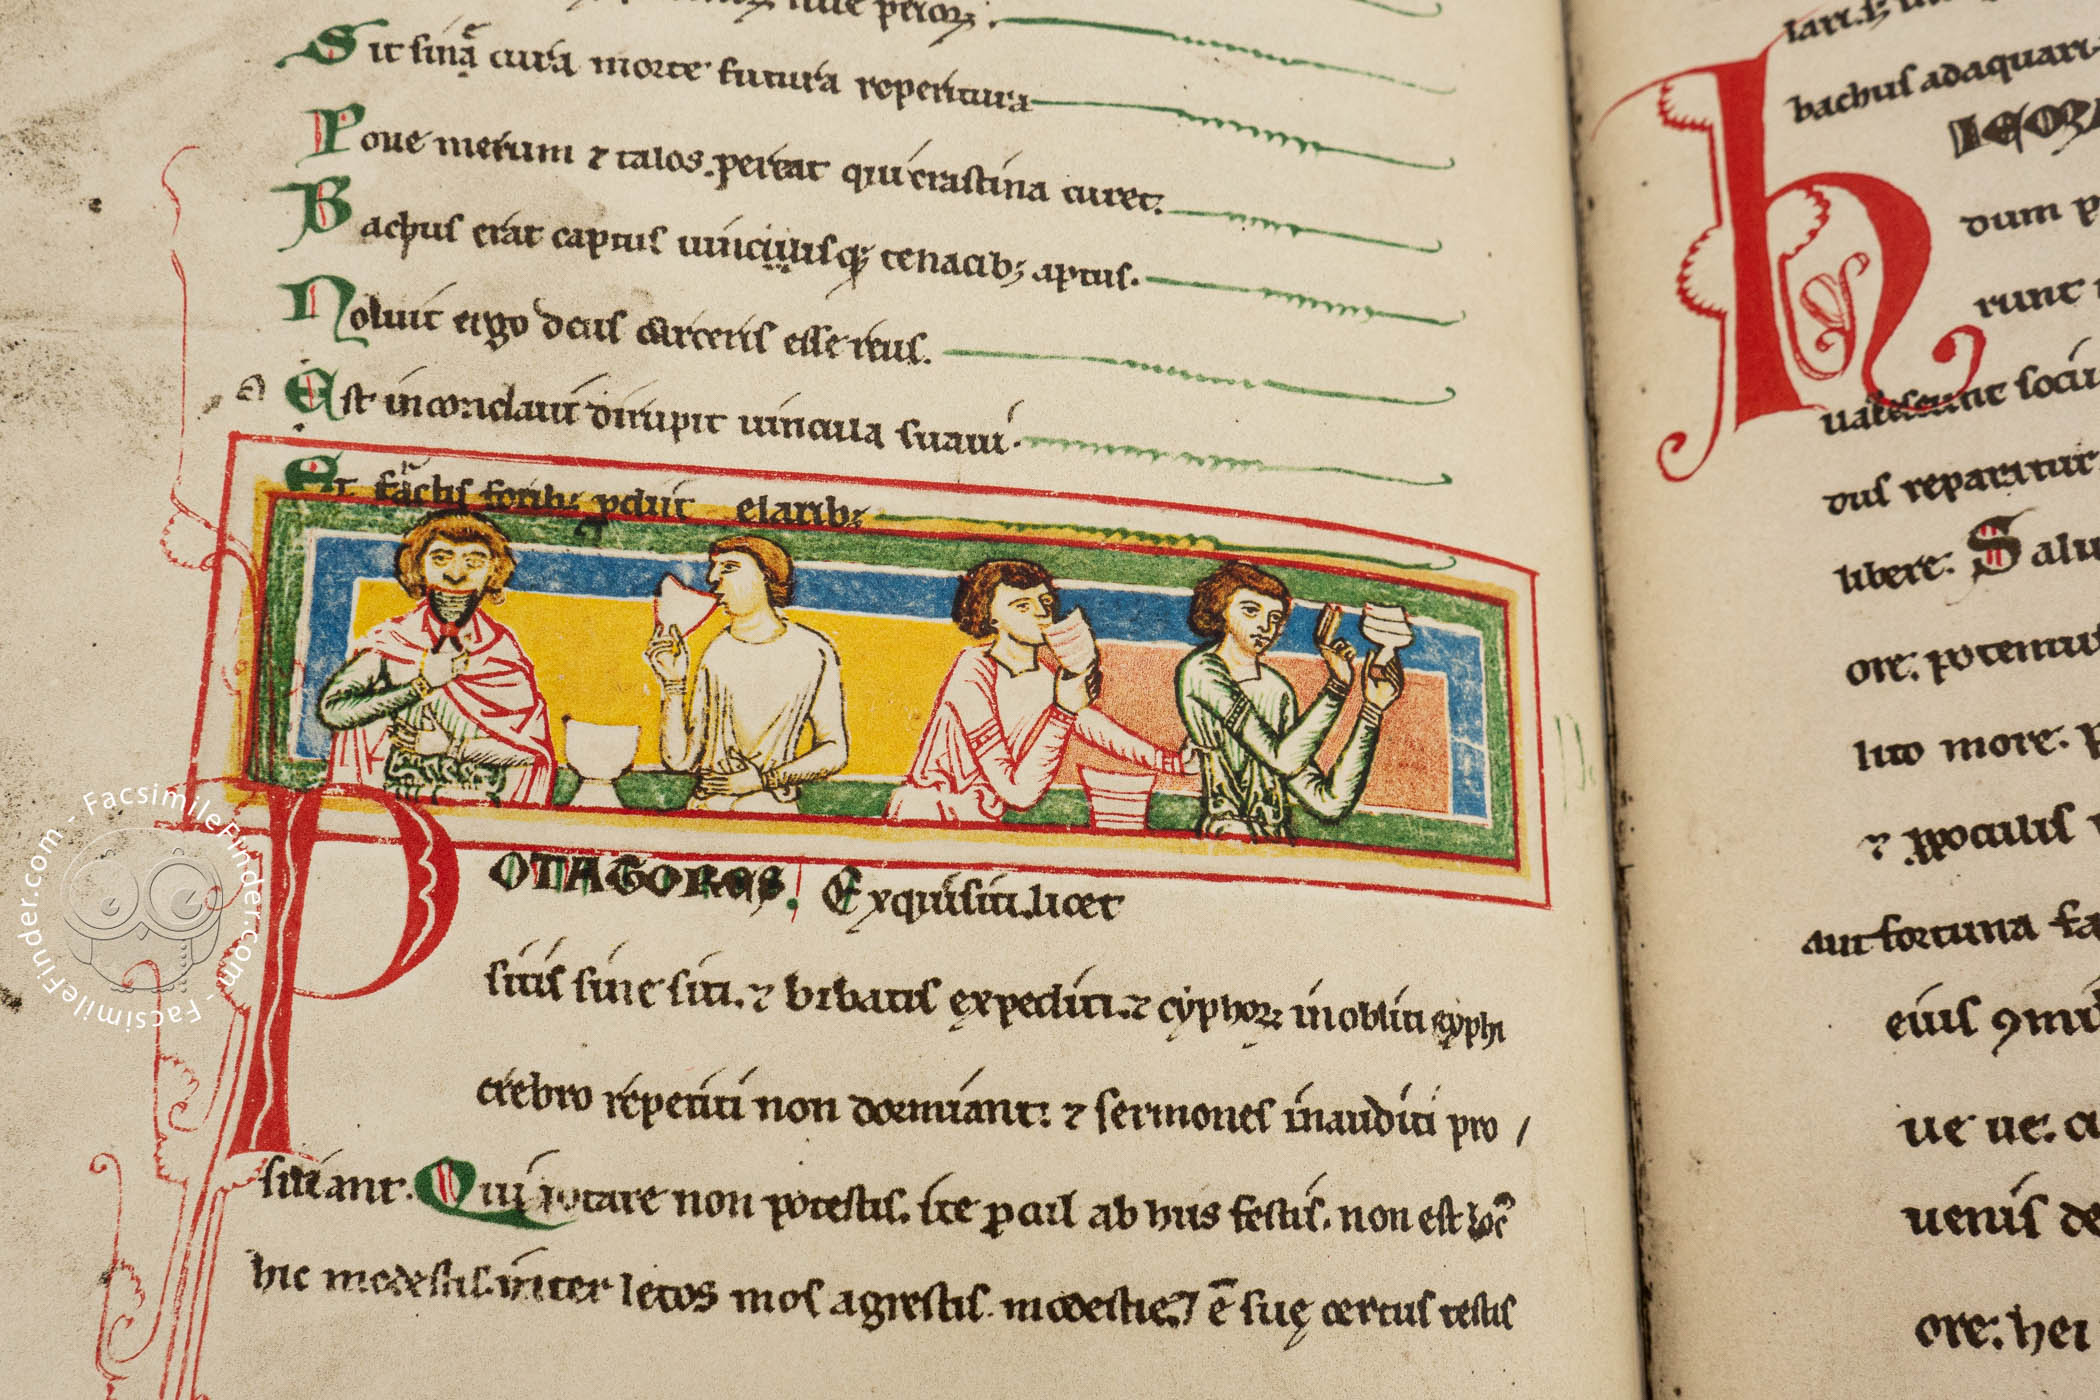 Sit sinā cura morte futura re peritura
Pone merum ⁊ talos. pereat qui crastina curet.
Bachus erat captus uinculisqꝫ tenacibꝫ aptus.
Noluit ergo deus carceris esse reus.
Ast in conclaui dirupit uincula suaui.
Et fractis foribꝫ ꝓdiit elaribꝫ
POTATORES. Exquisiti. licet
sitis sine siti. ⁊ bibatis expediti. ⁊ cyphoꝝ inobliti cyphi
crebro repetiti non dormiant: ⁊ sermones inauditi pro/
siliant. Qui potare non potestis. ite ꝓcul ab his festis. non est locꝰ
hic modestis. inter letos mos agrestis modestie. ē suę certus testis
bachus adaquari
dum p
runt
ualescunt socii
dus reparatur
libere. Salu
ore. potemus
lito more. p
⁊ poculis
aut fortuna fa
eius ꝯmu
ue ue. a
uenis de
ore. hei
FacsimileFinder.com - FacsimileFinder.com -